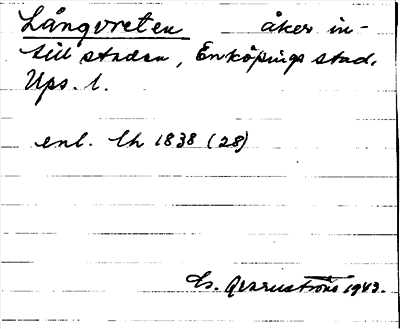 Långvreten åker in-
till staden, Enköpings stad.
Ups. l.
enl. Lh 1838 (28)
Es. 1943.